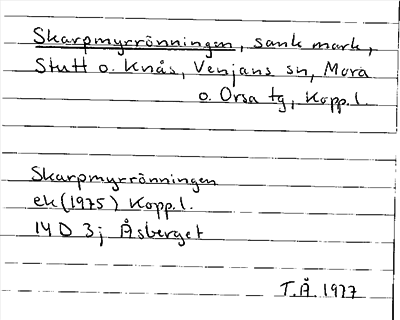 Skarpmyrrönningen, sank mark,
Stutt o. Knås, Venjans sn, Mora
o. Orsa tg, Kopp. l.
Skarpmyrrönningen
ek (1975) Kopp. l.
14 D 3j Åsberget
T.Å. 1977